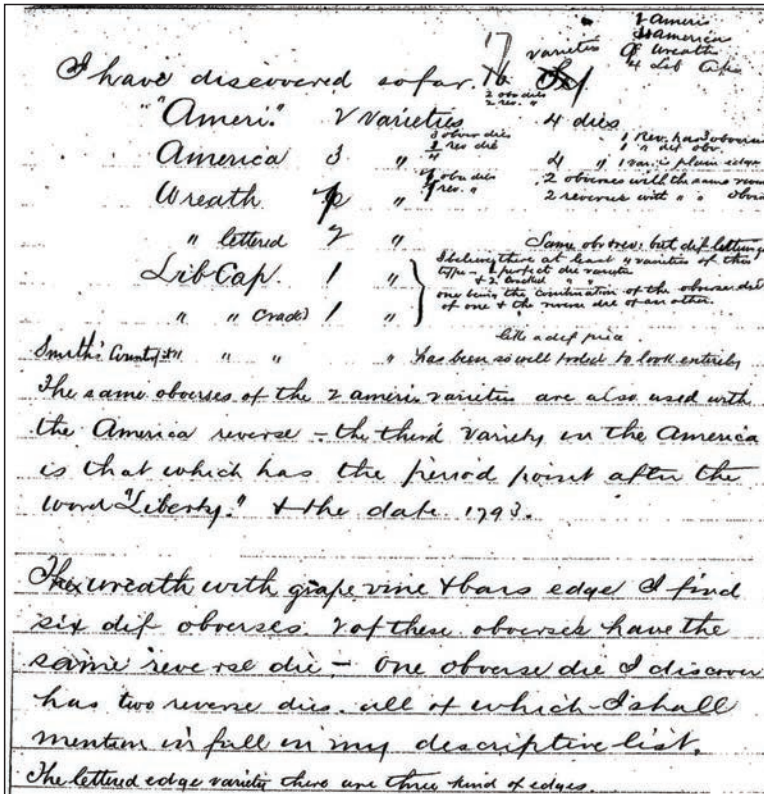 2 Ameri
4 America
9 Wreath
4 Lib Caps
17 varieties
I have discovered so far. 16
2 obv dies
2 rev. "
"Ameri." 2 varieties 4 dies
3 obver dies 1 Rev. has 3 obverses
rev die 1 " dif obv.
America 3 " 4 " 1 var. is plain edge
obv dies 2 obverses with the same reverse
Wreath " rev. " 2 reverses with " " obverse
" lettered 2 " Same obv & rev. but dif lettering
I believe there at least 4 varieties of this
Lib Cap. 1 " type - 2 perfect die varieties
& 2 cracked " "
one being the combination of the obverse die
" " Crack'd 1 " of one & the reverse die of an other.
like a dif piece
Smith's Counterfeit " " " " has been so well tooled to look entirely
The same obverses of the 2 ameri. varieties are also used with
the America reverse - the third variety in the America
is that which has the period point after the
word "Liberty." & the date. 1793.
The wreath with grape vine & bars edge I find
six dif obverses. 2 of these obverses have the
same reverse die - one obverse die I discover
has two reverse dies. all of which I shall
mention in full in my descriptive list.
The lettered edge variety there are three kind of edges.